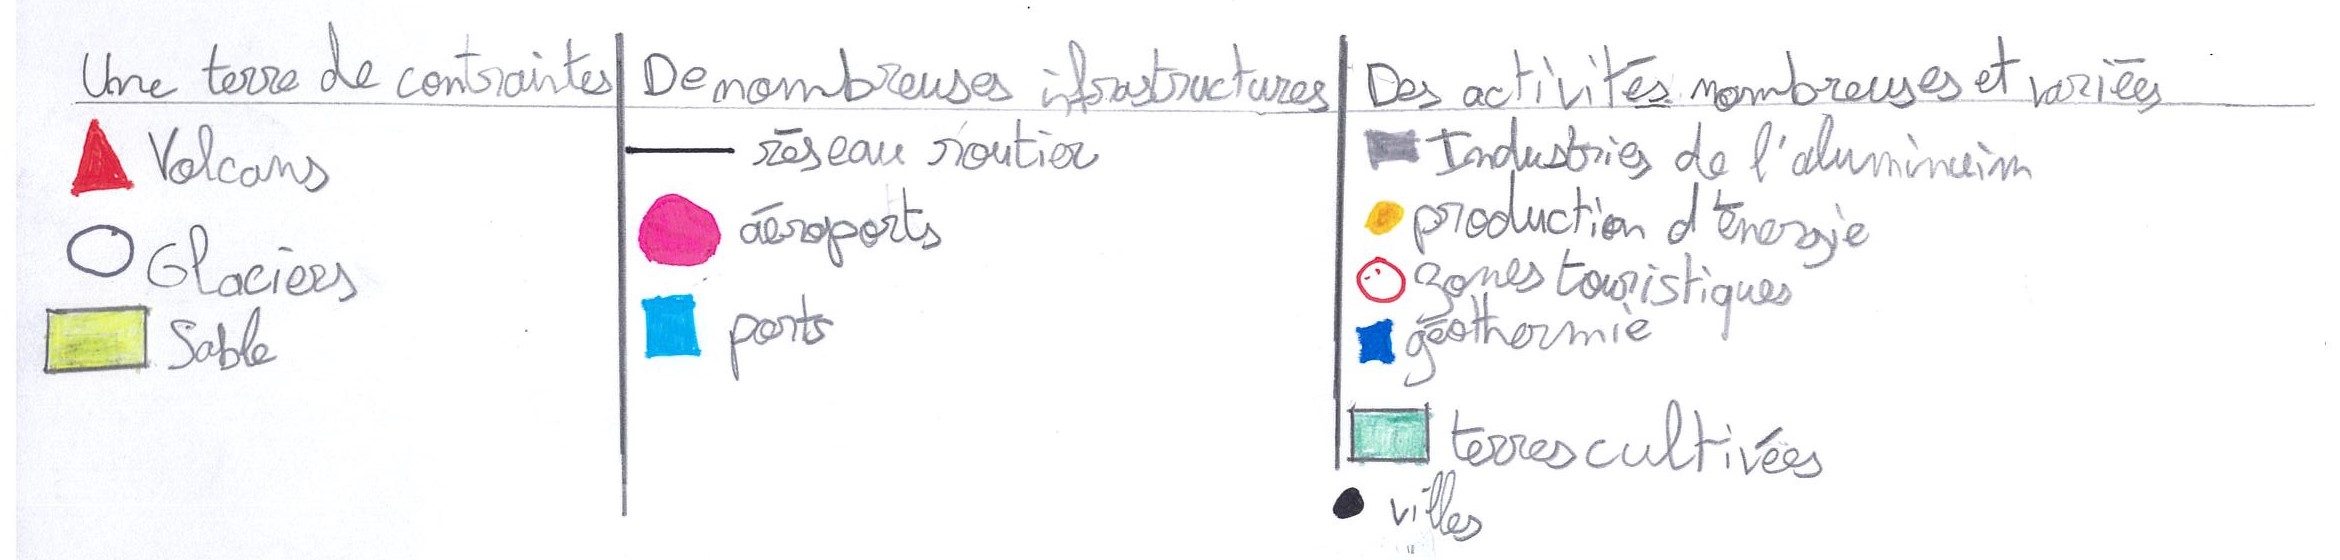 Une terre de contraintes
Volcans
Glaciers
Sable
De nombreuses ifrastructures
réseau routier
aéroports
ports
Des activités nombreuses et variées
Industries de l'aluminuim
production d'énergie
zones touristiques
géothermie
terres cultivées
villes